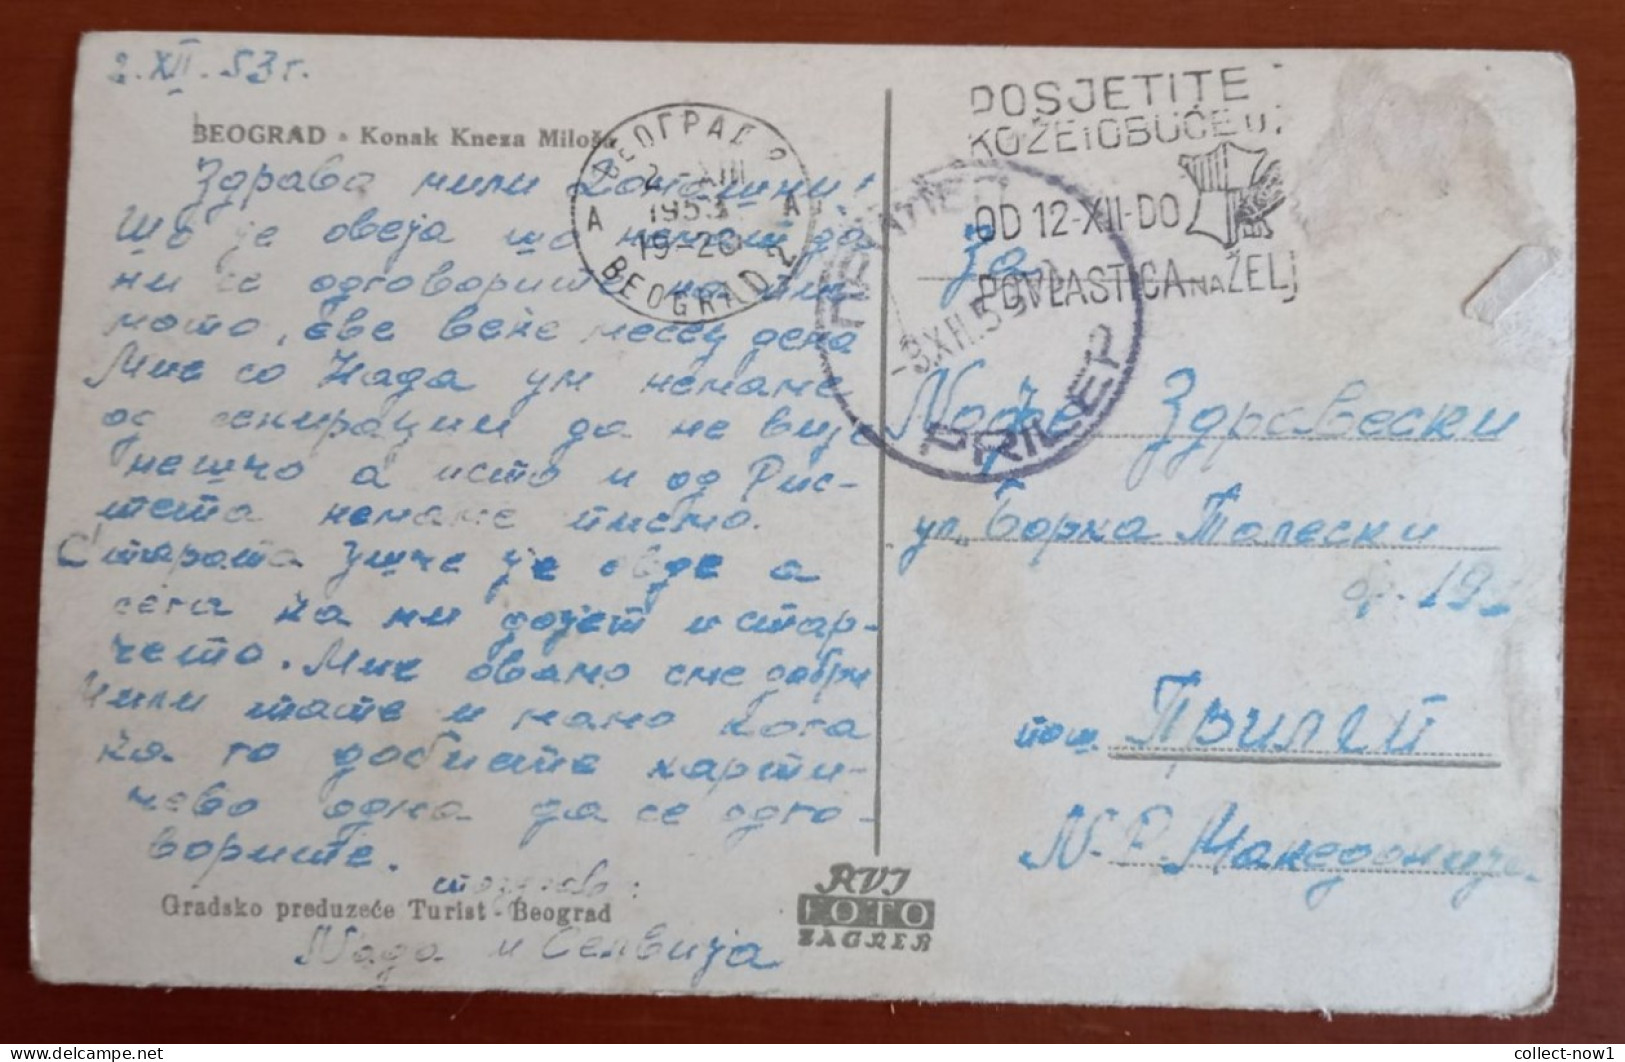 2.XII.53г.
BEOGRAD - Konak Kneza Miloša
Здраво мили домашни!
Що је овеја що немат да
ни се одговорите на пис-
мото, еве веќе месец дена
Мие со Нада ум немаме
да не виje
нешчо а исто и од Рис-
тета немаме писмо.
Старата ушче је овде а
сега ќа ни дојет и стар-
чето. Мие овамо сме добри
Мили тате и мамо кога
ќа го добиете карти-
чево одма да се одго-
ворите.
поздрав:
Gradsko preduzeće Turist - Beograd
Нада и Селвија
БЕОГРАД 2
2.-XII
1953
19-20
A A
BEOGRAD 2
POSJETITE
KOŽE I OBUĆE U
OD 12-XII-DO
POVLASTICA NA ŽELJ
PRILEP
-3.XII.53
За
Ноџе Здравески
ул. Борка Талески
бр. 19
пош. Прилеп
Н.Р. Македонија
RVI
FOTO
ZAGREB
collect-now1